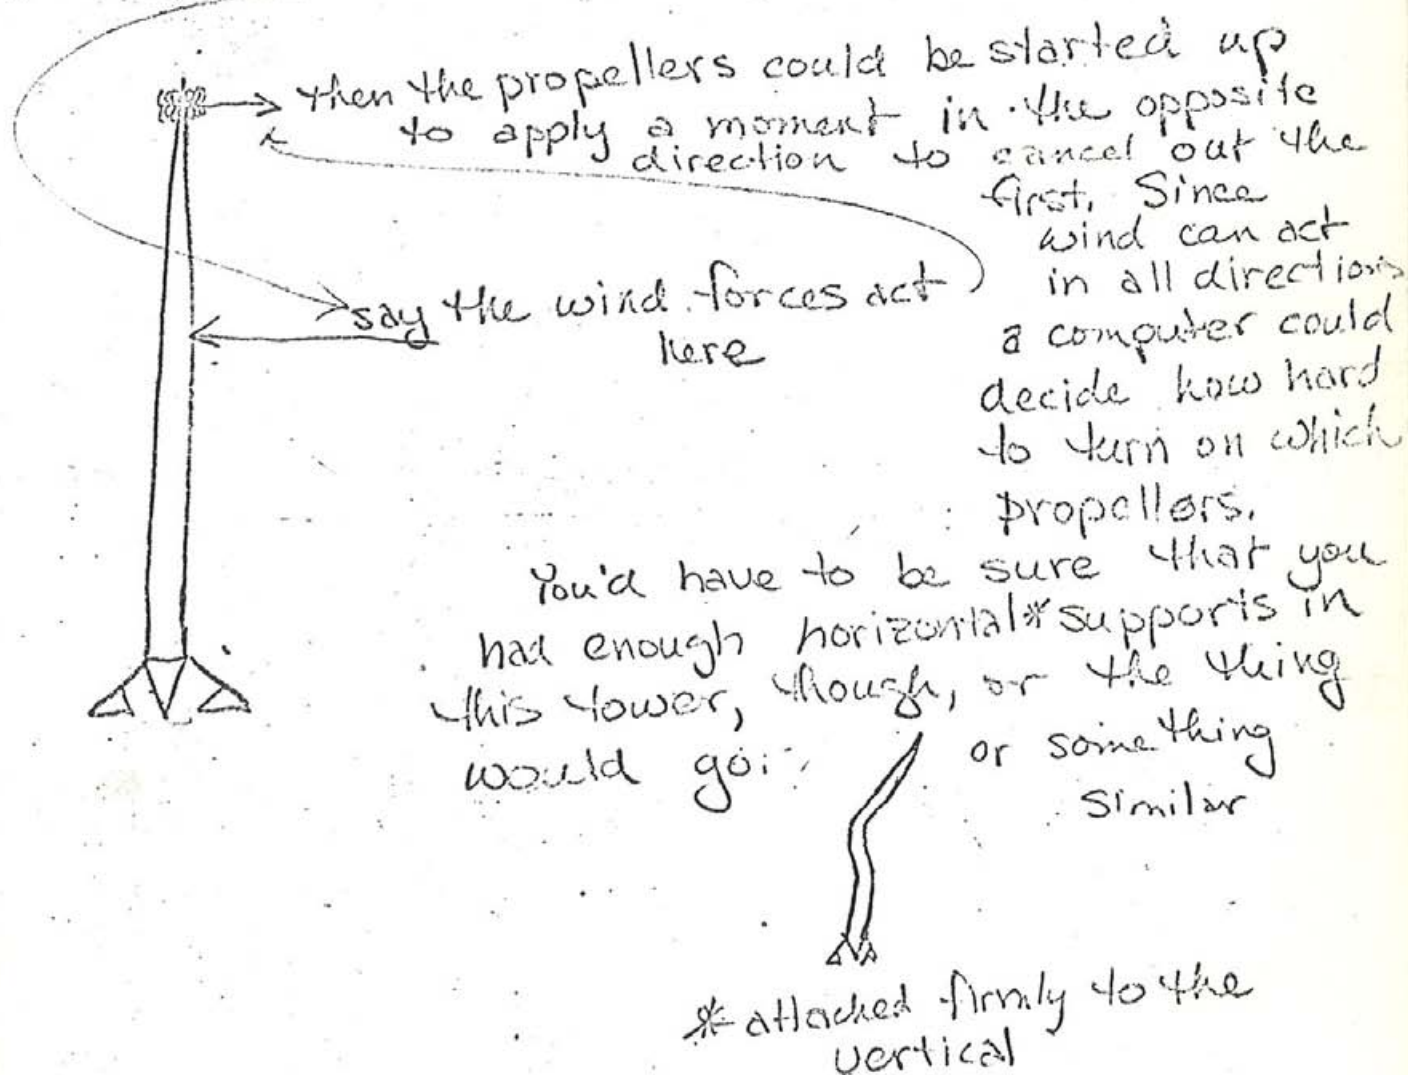 say the wind forces act
here
then the propellers could be started up
to apply a moment in the opposite
direction to cancel out the
first. Since
wind can act
in all directions
a computer could
decide how hard
to turn on which
propellors.
You'd have to be sure that you
had enough horizontal* supports in
this tower, though, or the thing
would go:
or something
similar
* attached firmly to the
vertical